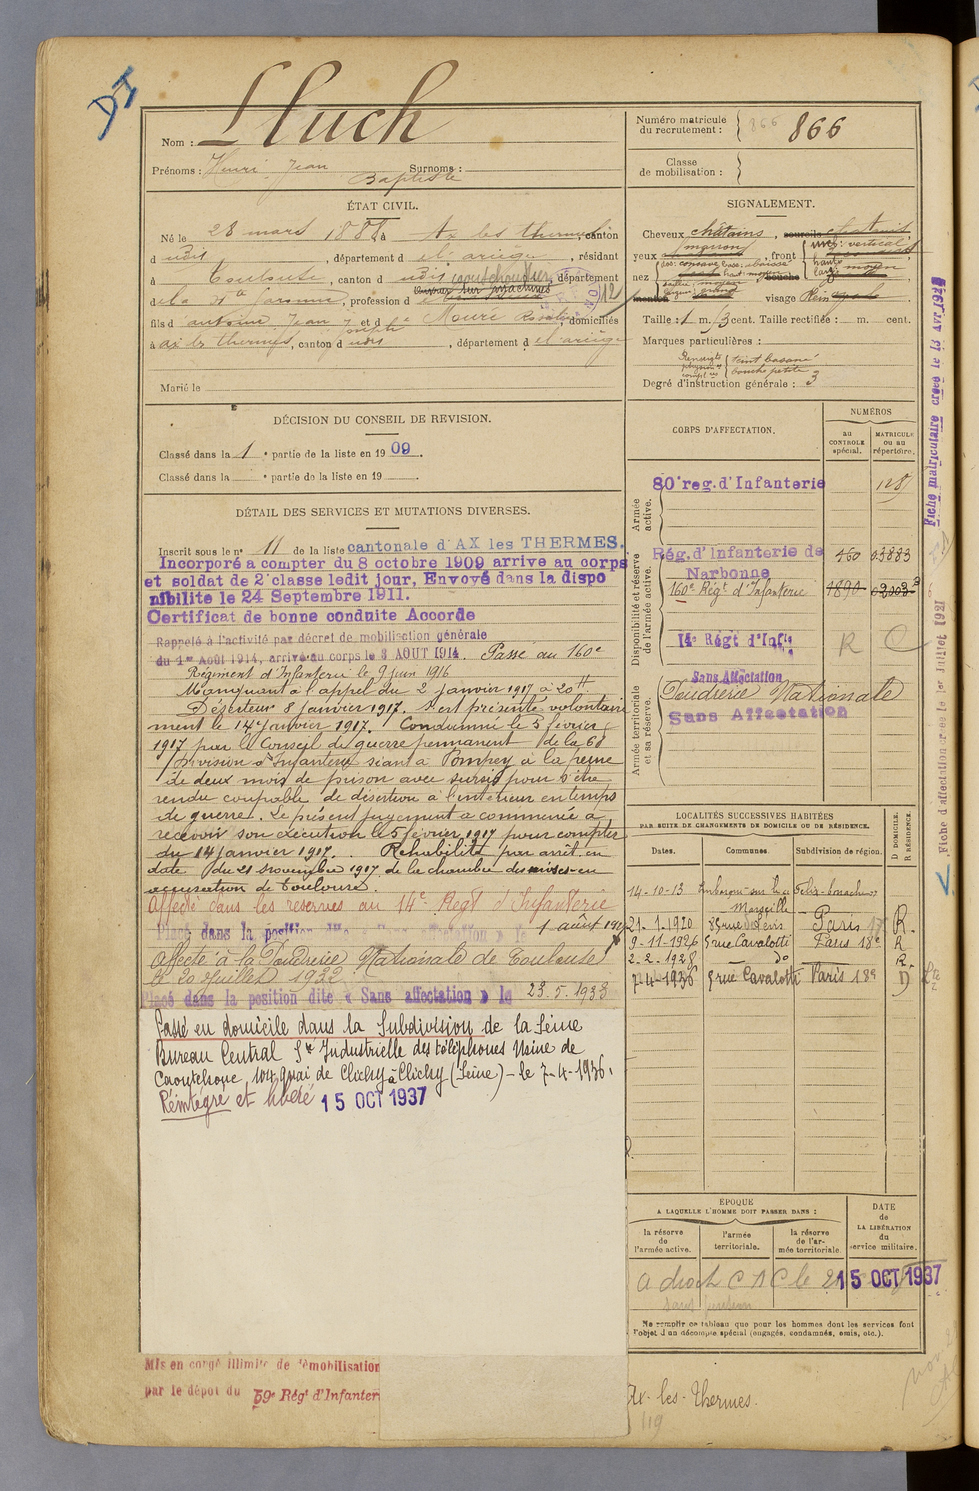 DI
Nom : Lluch
Prénoms : Henri Jean Surnoms :
Baptiste
ÉTAT CIVIL.
Né le 28 mars 1888 à Ax les thermes, canton
d udis, département d el. ariège, résidant
à Toulouse, canton d udis caoutchoutier, département
ouvrier sur machines
de la Hte Garonne, profession d
fils d'antoine Jean Joseph et d e Mouré Rosalie, domiciliés
à ax les thermes, canton d udis, département d el'ariège
Marié le
DÉCISION DU CONSEIL DE REVISION.
Classé dans la 1 e partie de la liste en 1909.
Classé dans la e partie de la liste en 19 .
DÉTAIL DES SERVICES ET MUTATIONS DIVERSES.
Inscrit sous le n° 11 de la liste cantonale d'AX les THERMES.
Incorporé a compter du 8 octobre 1909 arrive au corps
et soldat de 2e classe ledit jour, Envoyé dans la dispo
nibilite le 24 Septembre 1911.
Certificat de bonne conduite Accorde
Rappelé à l'activité par décret de mobilisation générale
du 1er Août 1914, arrivé au corps le 3 AOUT 1914. Passé au 160e
Régiment d'Infanterie le 9 juin 1916
Manquant à l'appel du 2 janvier 1917 à 20H
Déserteur 8 janvier 1917. S'est présenté volontaire
ment le 14 janvier 1917. Condamné le 3 février
1917 par le Conseil de guerre permanent de la 68
Division d'Infanterie séant à Pompey à la peine
de deux mois de prison avec sursis pour s'être
rendu coupable de désertion à l'intérieur en temps
de guerre. Le présent jugement a commencé à
recevoir son exécution le 5 février 1917 pour compter
du 14 janvier 1917. Réhabilité par arrêt en
date du 21 novembre 1917 de la chambre des mises en
accusation de Toulouse.
Affecté dans les réserves au 14e Regt d'Infanterie
Placé dans la position dite « Sans affectation » le 1 août 192
Affecté à la Poudrerie Nationale de Toulouse
le 20 Juillet 1932
Placé dans la position dite « Sans affectation » le 23.5.1933
Passé en domicile dans la Subdivision de la Seine
Bureau Central Sté Industrielle des téléphones Usine de
Caoutchouc, 104 quai de Clichy à Clichy (Seine) - le 7-4-1936.
Réintégré et libéré 15 OCT 1937
Mis en congé illimité de démobilisation
par le dépot du 59e Régt d'Infanter
Numéro matricule
du recrutement : 866 866
Classe
de mobilisation :
SIGNALEMENT.
Cheveux châtains, sourcils chatains
yeux marron, front inc: vertical
haut
larg: moyen
nez dos: concave base: abaissé
haut: moyen bouche
saillie: moyenne
menton visage Rein
Taille : 1 m. 73 cent. Taille rectifiée : m. cent.
Marques particulières :
Renseigts
physion es
compl res teint basané
bouche petite
Degré d'instruction générale : 3
CORPS D'AFFECTATION.
NUMÉROS
au
CONTROLE
spécial.
MATRICULE
ou au
répertoire.
Armée
active.
80e reg. d'Infanterie 128
Disponibilité et réserve
de l'armée active.
Rég. d'Infanterie de 460 03883
Narbonne
160e Régt d'Infanterie 1890
14e Régt d'Infie R C
Armée territoriale
et sa réserve.
Sans Affectation
Poudrerie Nationale
Sans Affectation
LOCALITÉS SUCCESSIVES HABITÉES
PAR SUITE DE CHANGEMENTS DE DOMICILE OU DE RÉSIDENCE.
Dates. Communes. Subdivision de région. D DOMICILE. R RÉSIDENCE.
14-10-13
Marseille
21-1-1920 Paris 17 R.
9-11-1926 5 rue Cavalotti Paris 18e R
2-2-1928 do R.
7-4-1936 5 rue Cavalotti Paris 18e D
ÉPOQUE
A LAQUELLE L'HOMME DOIT PASSER DANS :
DATE
de
LA LIBÉRATION
du
service militaire.
la réserve
de
l'armée active.
l'armée
territoriale.
la réserve
de l'ar-
mée territoriale.
15 OCT 1937
Ne remplir ce tableau que pour les hommes dont les services font
l'objet d'un décompte spécial (engagés, condamnés, omis, etc.).
Ax-les-Thermes.
Fiche matriculaire créée le 13 Avr 192
Fiche d'affectation créée le 1er Juillet 1921